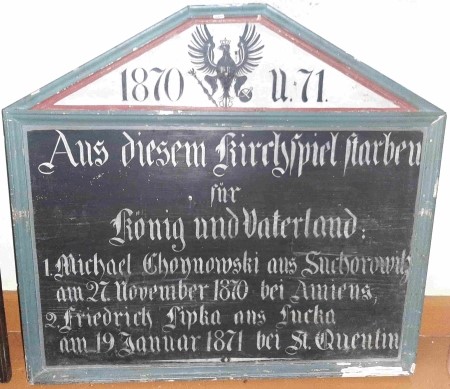 1870 u. 71.
Aus diesem Kirchspiel starben
für
König und Vaterland:
1. Michael Choynowski aus Suchorowitz
am 27. November 1870 bei Amiens,
2. Friedrich Lipka aus Lucka
am 19 Januar 1871 bei St. Quentin